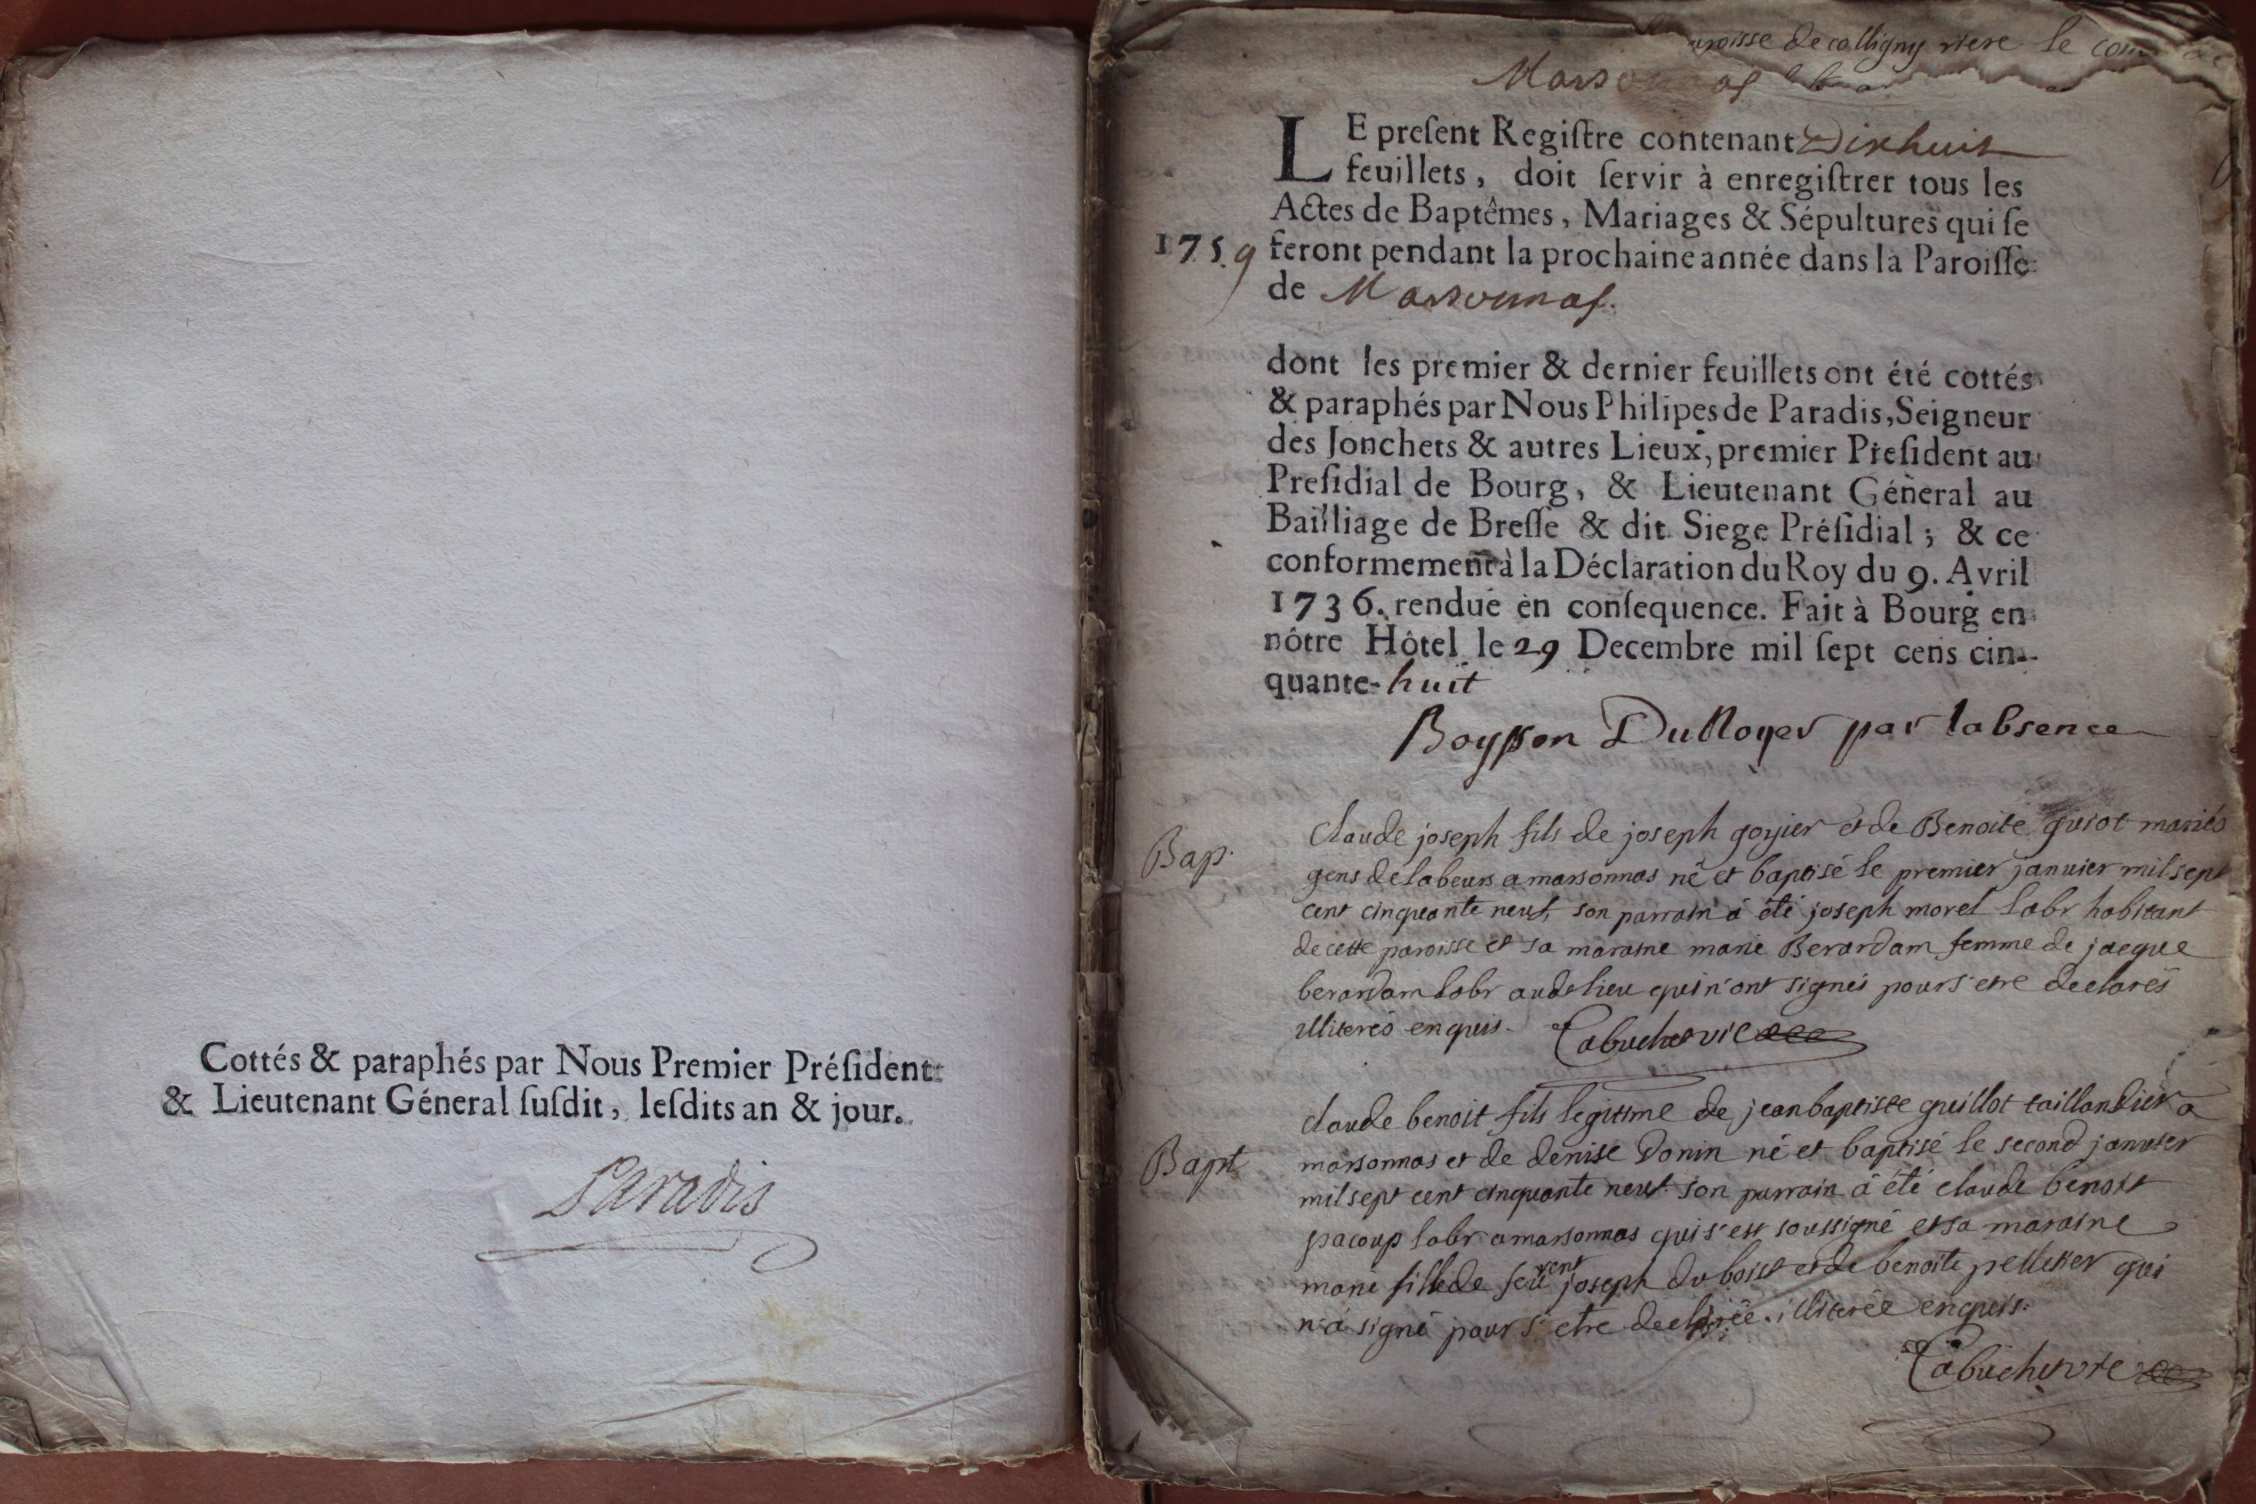 Cottés & paraphés par Nous Premier Préſident
& Lieutenant Géneral ſuſdit, leſdits an & jour.
Paradis
paroisse de colligny riere le
LE preſent Regiſtre contenant Dixhuit
feuillets, doit ſervir à enregiſtrer tous les
Actes de Baptêmes, Mariages & Sépultures qui ſe
1759 feront pendant la prochaine année dans la Paroiſſe
de Marsonnas.
dont les premier & dernier feuillets ont été cottés
& paraphés par Nous Philipes de Paradis, Seigneur
des Jonchets & autres Lieux, premier Preſident au
Preſidial de Bourg, & Lieutenant Géneral au
Bailliage de Breſſe & dit Siege Préſidial; & ce
conformement à la Déclaration du Roy du 9. Avril
1736. rendue en conſequence. Fait à Bourg en
nôtre Hôtel le 29 Decembre mil ſept cens cin-
quante-huit
Par labsence
Bap. claude joseph fils de joseph goyier et de Benoite guiot mariés
gens de labeurs a marsonnas né et baptisé le premier januier mil sept
cent cinquante neuf, son parrain á été joseph morel labr habitant
de cette paroisse et sa maraine marie Berardam femme de jacque
berardam labr aud lieu qui n'ont signés pour s'etre declarés
illiterés enquis. Cabuchet vic
Bapt claude benoit fils legitime de jean baptiste guillot taillandier a
marsonnas et de denise Donin né et baptisé le second januier
mil sept cent cinquante neuf. son parrain á été claude benoit
pacoup labr a marsonnas qui s'est soussigné et sa maraine
marie fille de feu joseph du boist et de benoite pelletier qui
n'á signé pour s'etre declarée illiterée enquis.
Cabuchet vic